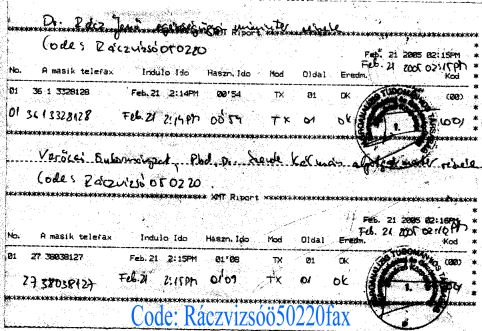 Dr. Rácz Jenő egészségügyi miniszter részére
XMT Riport
(Code: Ráczvizsó050220
Feb. 21 2005 02:15PM
Feb. 21 2005 02:15PM
No. A masik telefax Indulo Ido Haszn.Ido Mod Oldal Eredm. Kod
01 36 1 3328128 Feb.21 2:14PM 00'54 TX 01 OK (00)
01 36 1 3328128 Feb.21 2:14PM 00'54 TX 01 OK
Verőcei Önkormányzat, Phd. Dr. Kálmán részére
(Code: Ráczvizsó050220.
XMT Riport
Feb. 21 2005 02:16PM
Feb. 21 2005 02:16PM
No. A masik telefax Indulo Ido Haszn.Ido Mod Oldal Eredm. Kod
01 27 38038127 Feb.21 2:15PM 01'08 TX 01 OK (00)
27 38038127 Feb.21 2:15PM TX 01 OK
Code: Ráczvizsóö50220fax